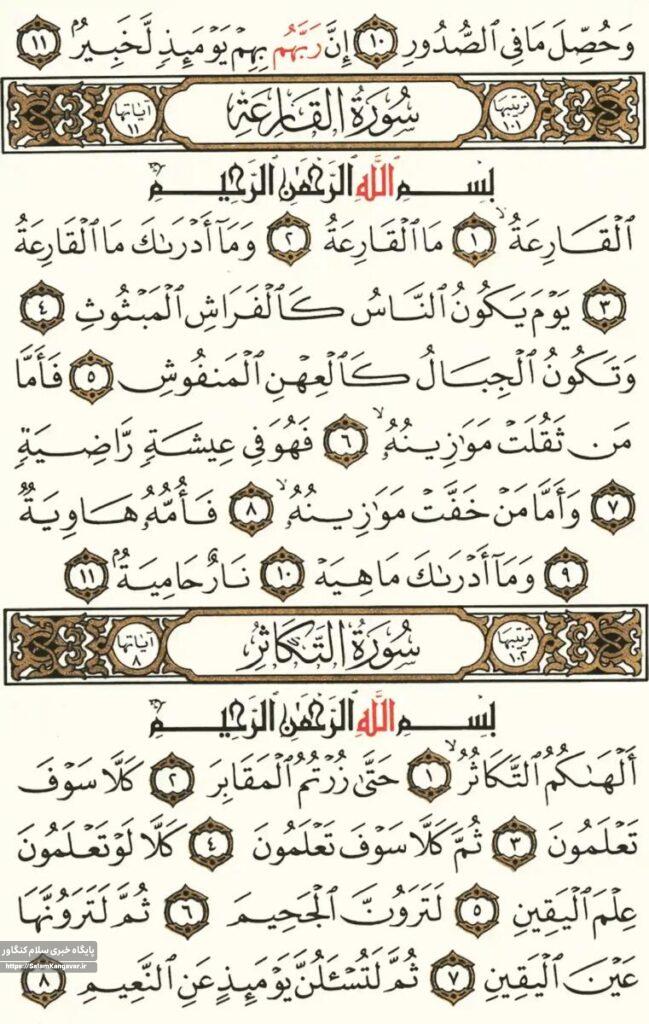 وَحُصِّلَ مَا فِی ٱلصُّدُورِ ١٠ إِنَّ رَبَّهُم بِهِمْ یَوْمَئِذٍ لَّخَبِیرٌ ١١
ترتیبها ١٠١ سُورَةُ القَارِعَةِ آیاتها ١١
بِسْمِ ٱللَّهِ ٱلرَّحْمَٰنِ ٱلرَّحِیمِ
ٱلْقَارِعَةُ ١ مَا ٱلْقَارِعَةُ ٢ وَمَآ أَدْرَىٰكَ مَا ٱلْقَارِعَةُ
٣ یَوْمَ یَكُونُ ٱلنَّاسُ كَٱلْفَرَاشِ ٱلْمَبْثُوثِ ٤
وَتَكُونُ ٱلْجِبَالُ كَٱلْعِهْنِ ٱلْمَنفُوشِ ٥ فَأَمَّا
مَن ثَقُلَتْ مَوَٰزِینُهُۥ ٦ فَهُوَ فِی عِیشَةٍ رَّاضِیَةٍ
٧ وَأَمَّا مَنْ خَفَّتْ مَوَٰزِینُهُۥ ٨ فَأُمُّهُۥ هَاوِیَةٌ
٩ وَمَآ أَدْرَىٰكَ مَا هِیَهْ ١٠ نَارٌ حَامِیَةٌ ١١
ترتیبها ١٠٢ سُورَةُ التَّكَاثُرِ آیاتها ٨
بِسْمِ ٱللَّهِ ٱلرَّحْمَٰنِ ٱلرَّحِیمِ
أَلْهَىٰكُمُ ٱلتَّكَاثُرُ ١ حَتَّىٰ زُرْتُمُ ٱلْمَقَابِرَ ٢ كَلَّا سَوْفَ
تَعْلَمُونَ ٣ ثُمَّ كَلَّا سَوْفَ تَعْلَمُونَ ٤ كَلَّا لَوْ تَعْلَمُونَ
عِلْمَ ٱلْیَقِینِ ٥ لَتَرَوُنَّ ٱلْجَحِیمَ ٦ ثُمَّ لَتَرَوُنَّهَا
عَیْنَ ٱلْیَقِینِ ٧ ثُمَّ لَتُسْـَٔلُنَّ یَوْمَئِذٍ عَنِ ٱلنَّعِیمِ ٨
پایگاه خبری سلام کنگاور
https://SalamKangavar.ir